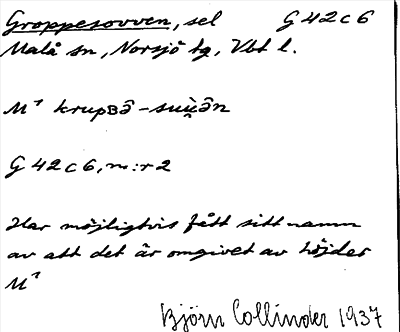 Groppesovven, sel G 42 c 6
Malå sn, Norsjö tg, Vbt l.
M¹ krupʙə̑-suu̯ə̑n
G 42 c 6, nr: r 2
Har möjligtvis fått sitt namn
av att det är omgivet av höjder
M¹
Björn Collinder 1937